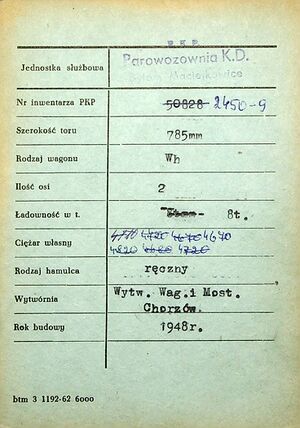 P.K.P.
Jednostka służbowa Parowozownia K.D.
Nr inwentarza PKP 50828 2450-9
Szerokość toru 785mm
Rodzaj wagonu Wh
Ilość osi 2
Ładowność w t. 8t.
Ciężar własny 4670
4820 4680 4720
Rodzaj hamulca ręczny
Wytwórnia Wytw. Wag. i Most.
Chorzów.
Rok budowy 1948r.
btm 3 1192-62 6000